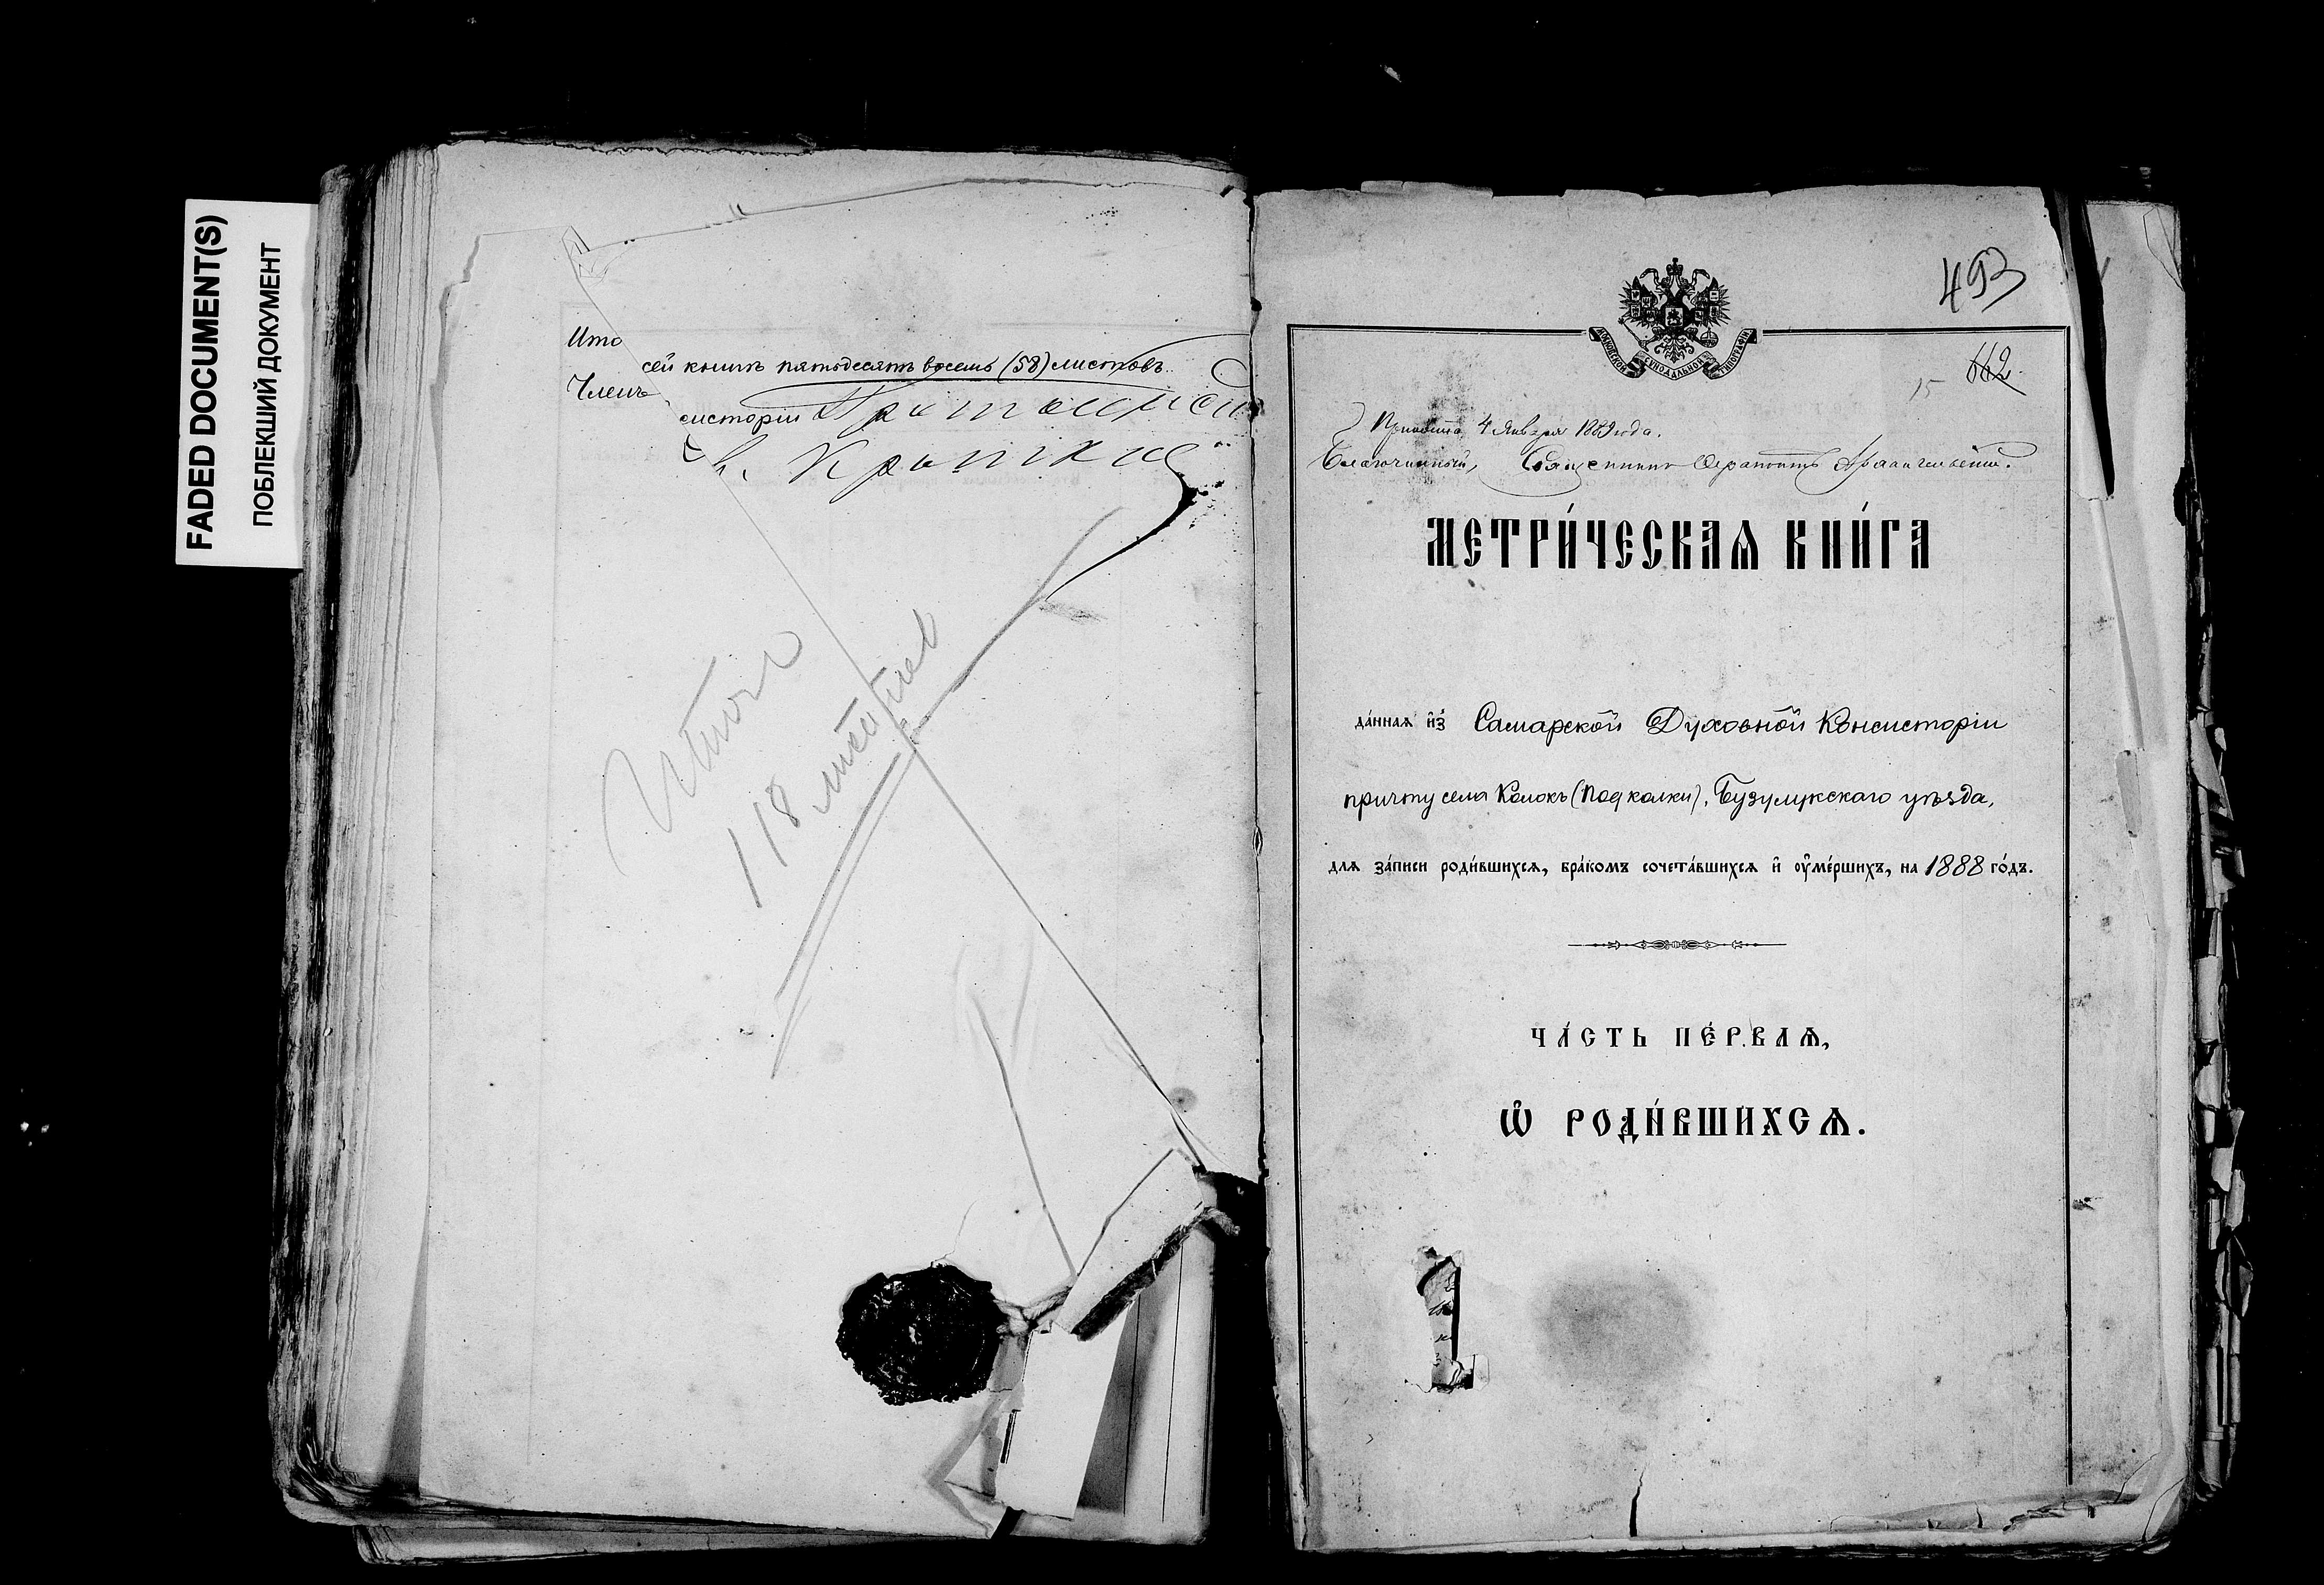 FADED DOCUMENT(S)
ПОБЛЕКШИЙ ДОКУМЕНТ
Что
сей книгѣ пятьдесятъ восемь (58) листовъ.
Членъ
систоріи
Итого
118 листов
493
МОСКОВСКОЙ СѴНОДАЛЬНОЙ ТИПОГРАФІИ
15 662.
4 Января 1889 года.
Благочинный, Священникъ Архангельскій.
МЕТРИ́ЧЕСКАѦ КНИ́ГА
да́ннаѧ и҆з̾ Самарской Духовной Консисторіи
причту села Колокъ (Подколки), Бузулукскаго уѣзда,
длѧ за́писи роди́вшихсѧ, бра́комъ сочета́вшихсѧ и҆ ᲂу҆ме́ршихъ, на 1888 го́дъ.
ЧА́СТЬ ПЕ́РВАѦ,
Ѽ РОДИ́ВШИХСѦ.